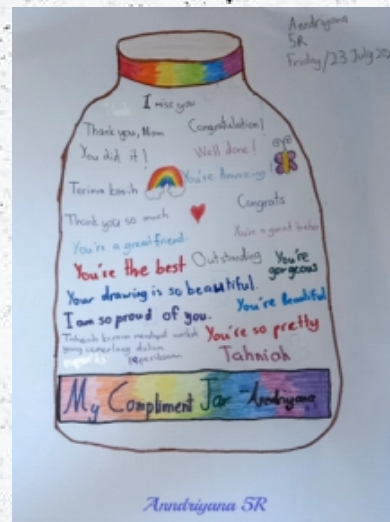 Anndriyana
5R
Friday/23 July
I miss you
Thank you, Mom
Congratulation!
You did it!
Well done!
You're Amazing!
Terima kasih
Congrats
Thank you so much
You're a great
You're a great friend
Outstanding
You're gorgeous
You're the best
Your drawing is so beautiful.
You're Beautiful
I am so proud of you.
You're so pretty
Tahniah kerana
yang cemerlang dalam
Tahniah
My Compliment Jar -Anndriyana
Anndriyana 5R